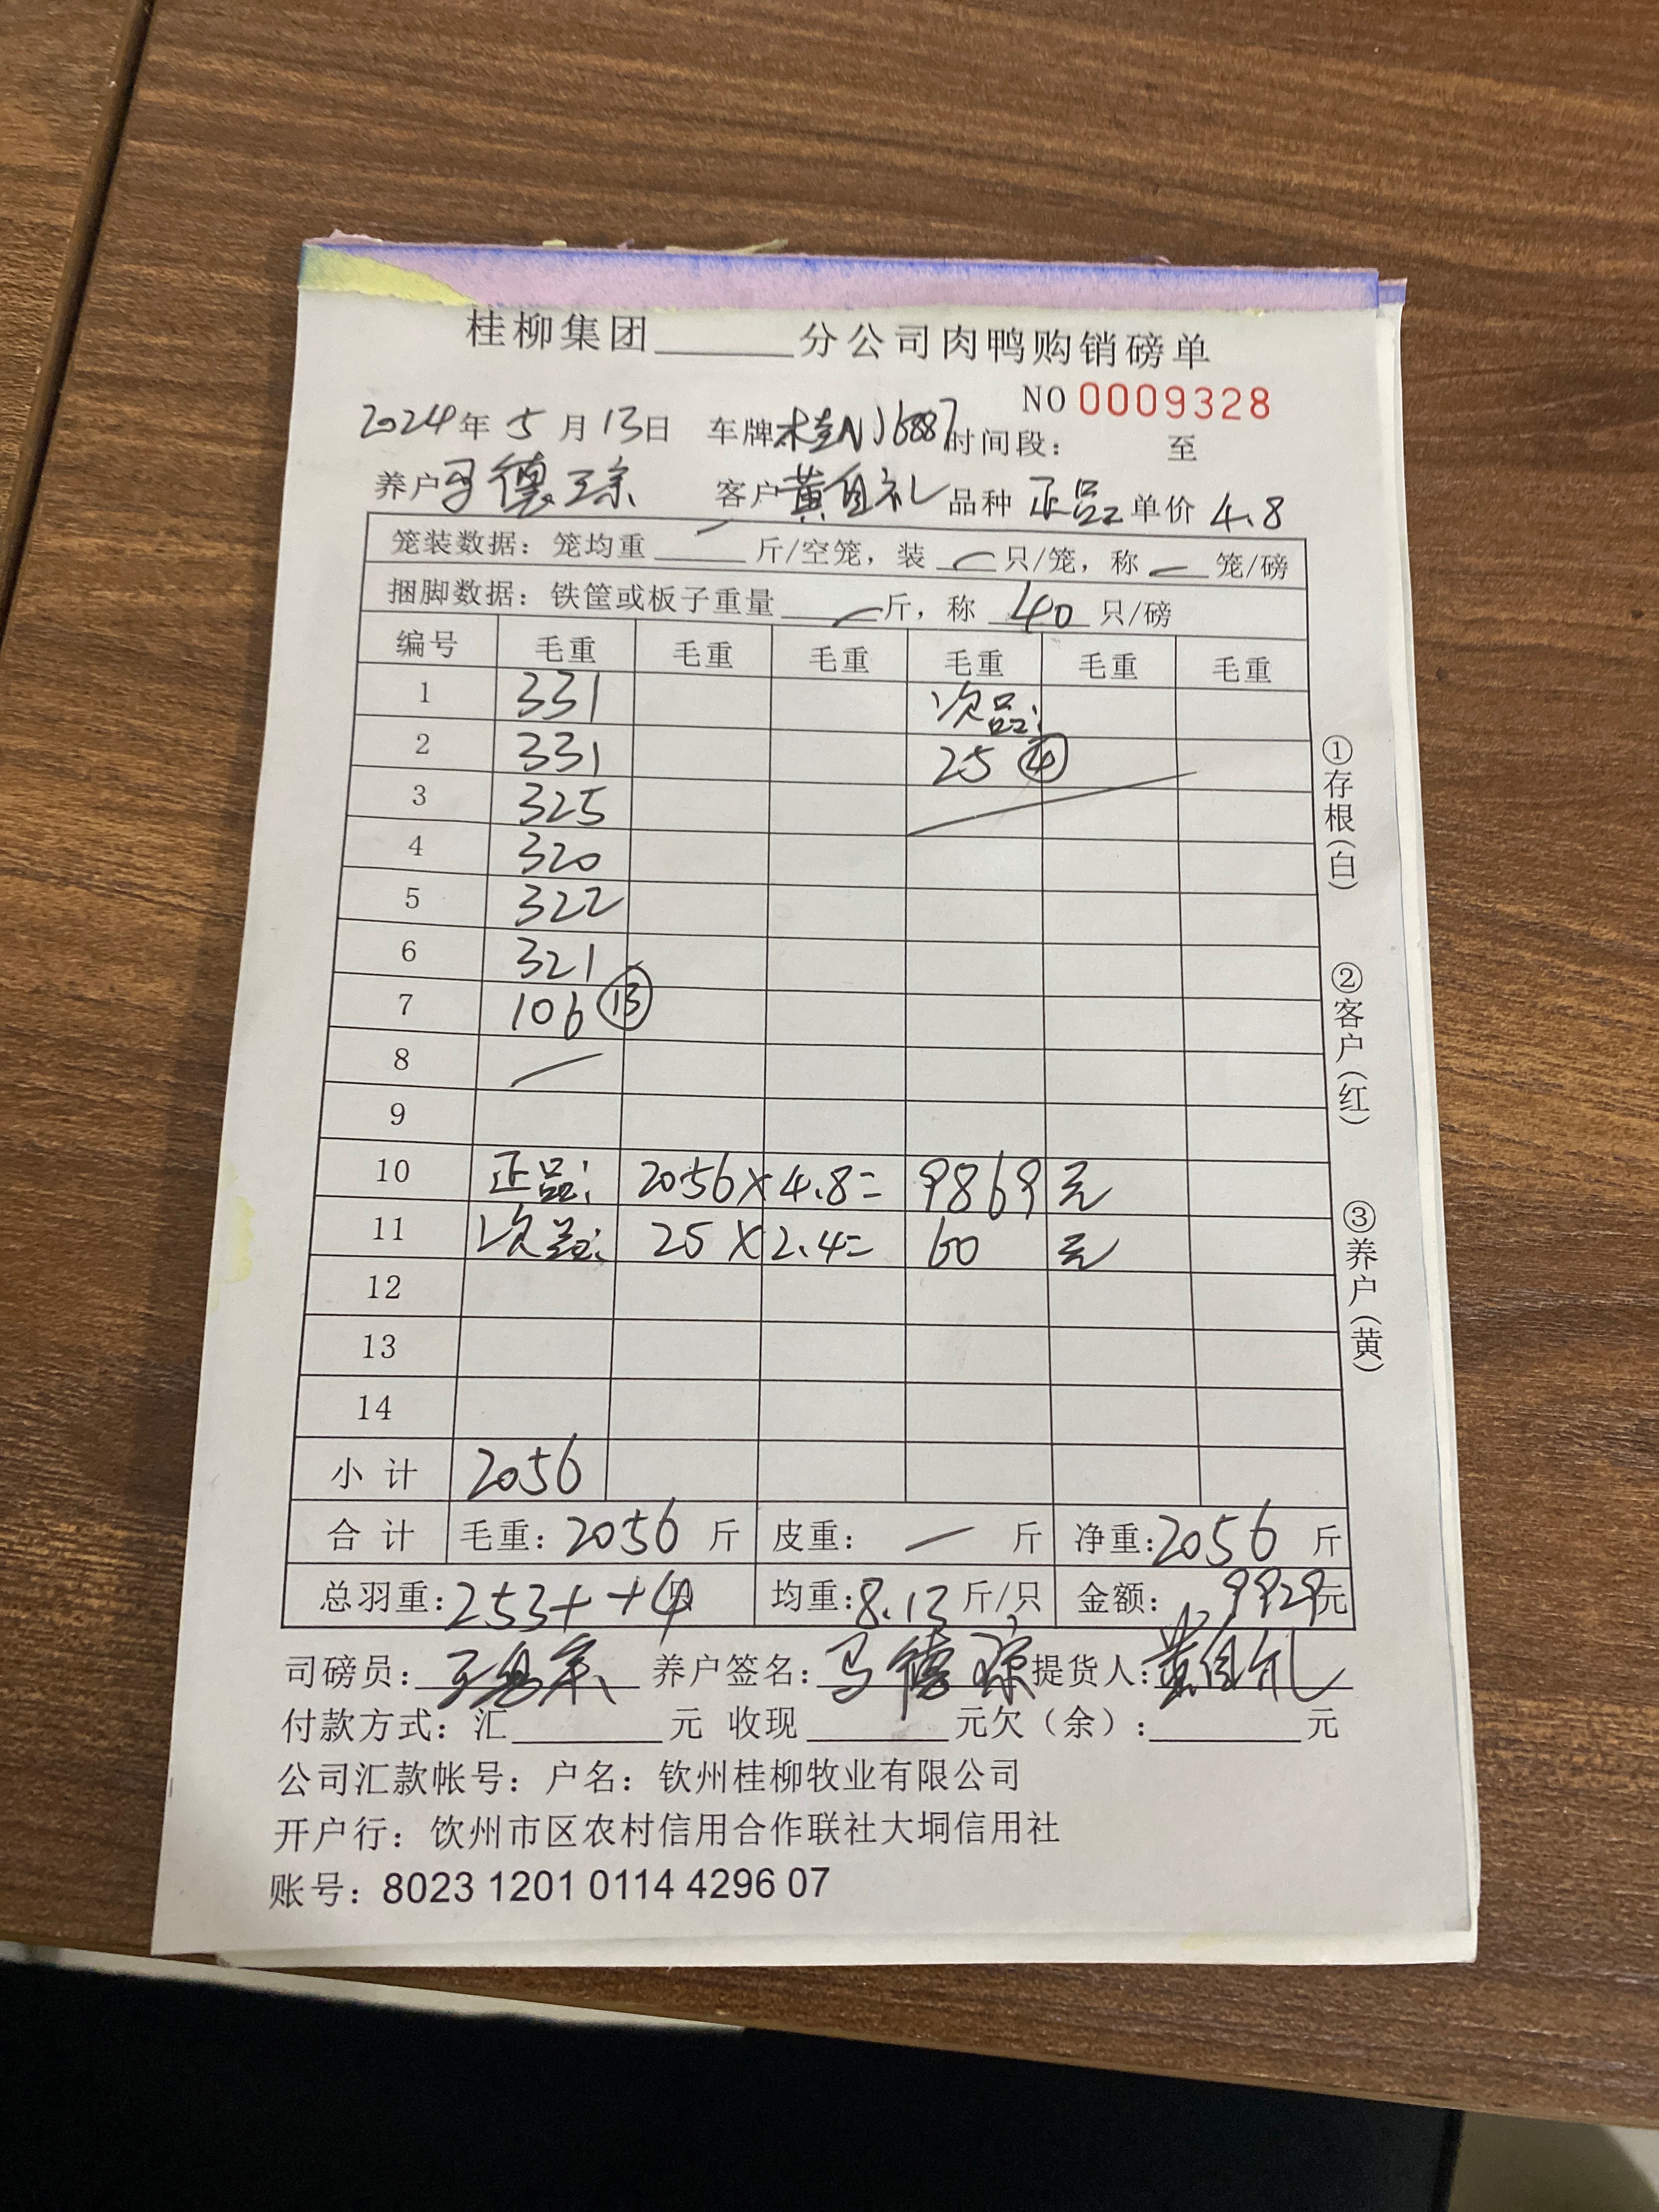 桂柳集团______分公司肉鸭购销磅单
NO 0009328
2024年 5月 13日 车牌桂NJ6887 时间段： 至
养户马德琼 客户黄自礼 品种 正品 单价 4.8
笼装数据：笼均重 — 斤/空笼，装 — 只/笼，称 — 笼/磅
捆脚数据：铁筐或板子重量 — 斤，称 40 只/磅
编号 毛重 毛重 毛重 毛重 毛重 毛重
1 331 次品：
2 331 25 ④
3 325
4 320
5 322
6 321
7 106 ⑬
8 —
9
10 正品： 2056×4.8= 9869 元
11 次品： 25×2.4= 60 元
12
13
14
小计 2056
合计 毛重：2056 斤 皮重： — 斤 净重：2056 斤
总羽重：253+ +4只 均重：8.13 斤/只 金额：9929元
司磅员： 养户签名：马德琼 提货人：黄自礼
付款方式：汇______元 收现______元欠（余）：______元
公司汇款帐号：户名：钦州桂柳牧业有限公司
开户行：钦州市区农村信用合作联社大垌信用社
账号：8023 1201 0114 4296 07
①存根（白）
②客户（红）
③养户（黄）